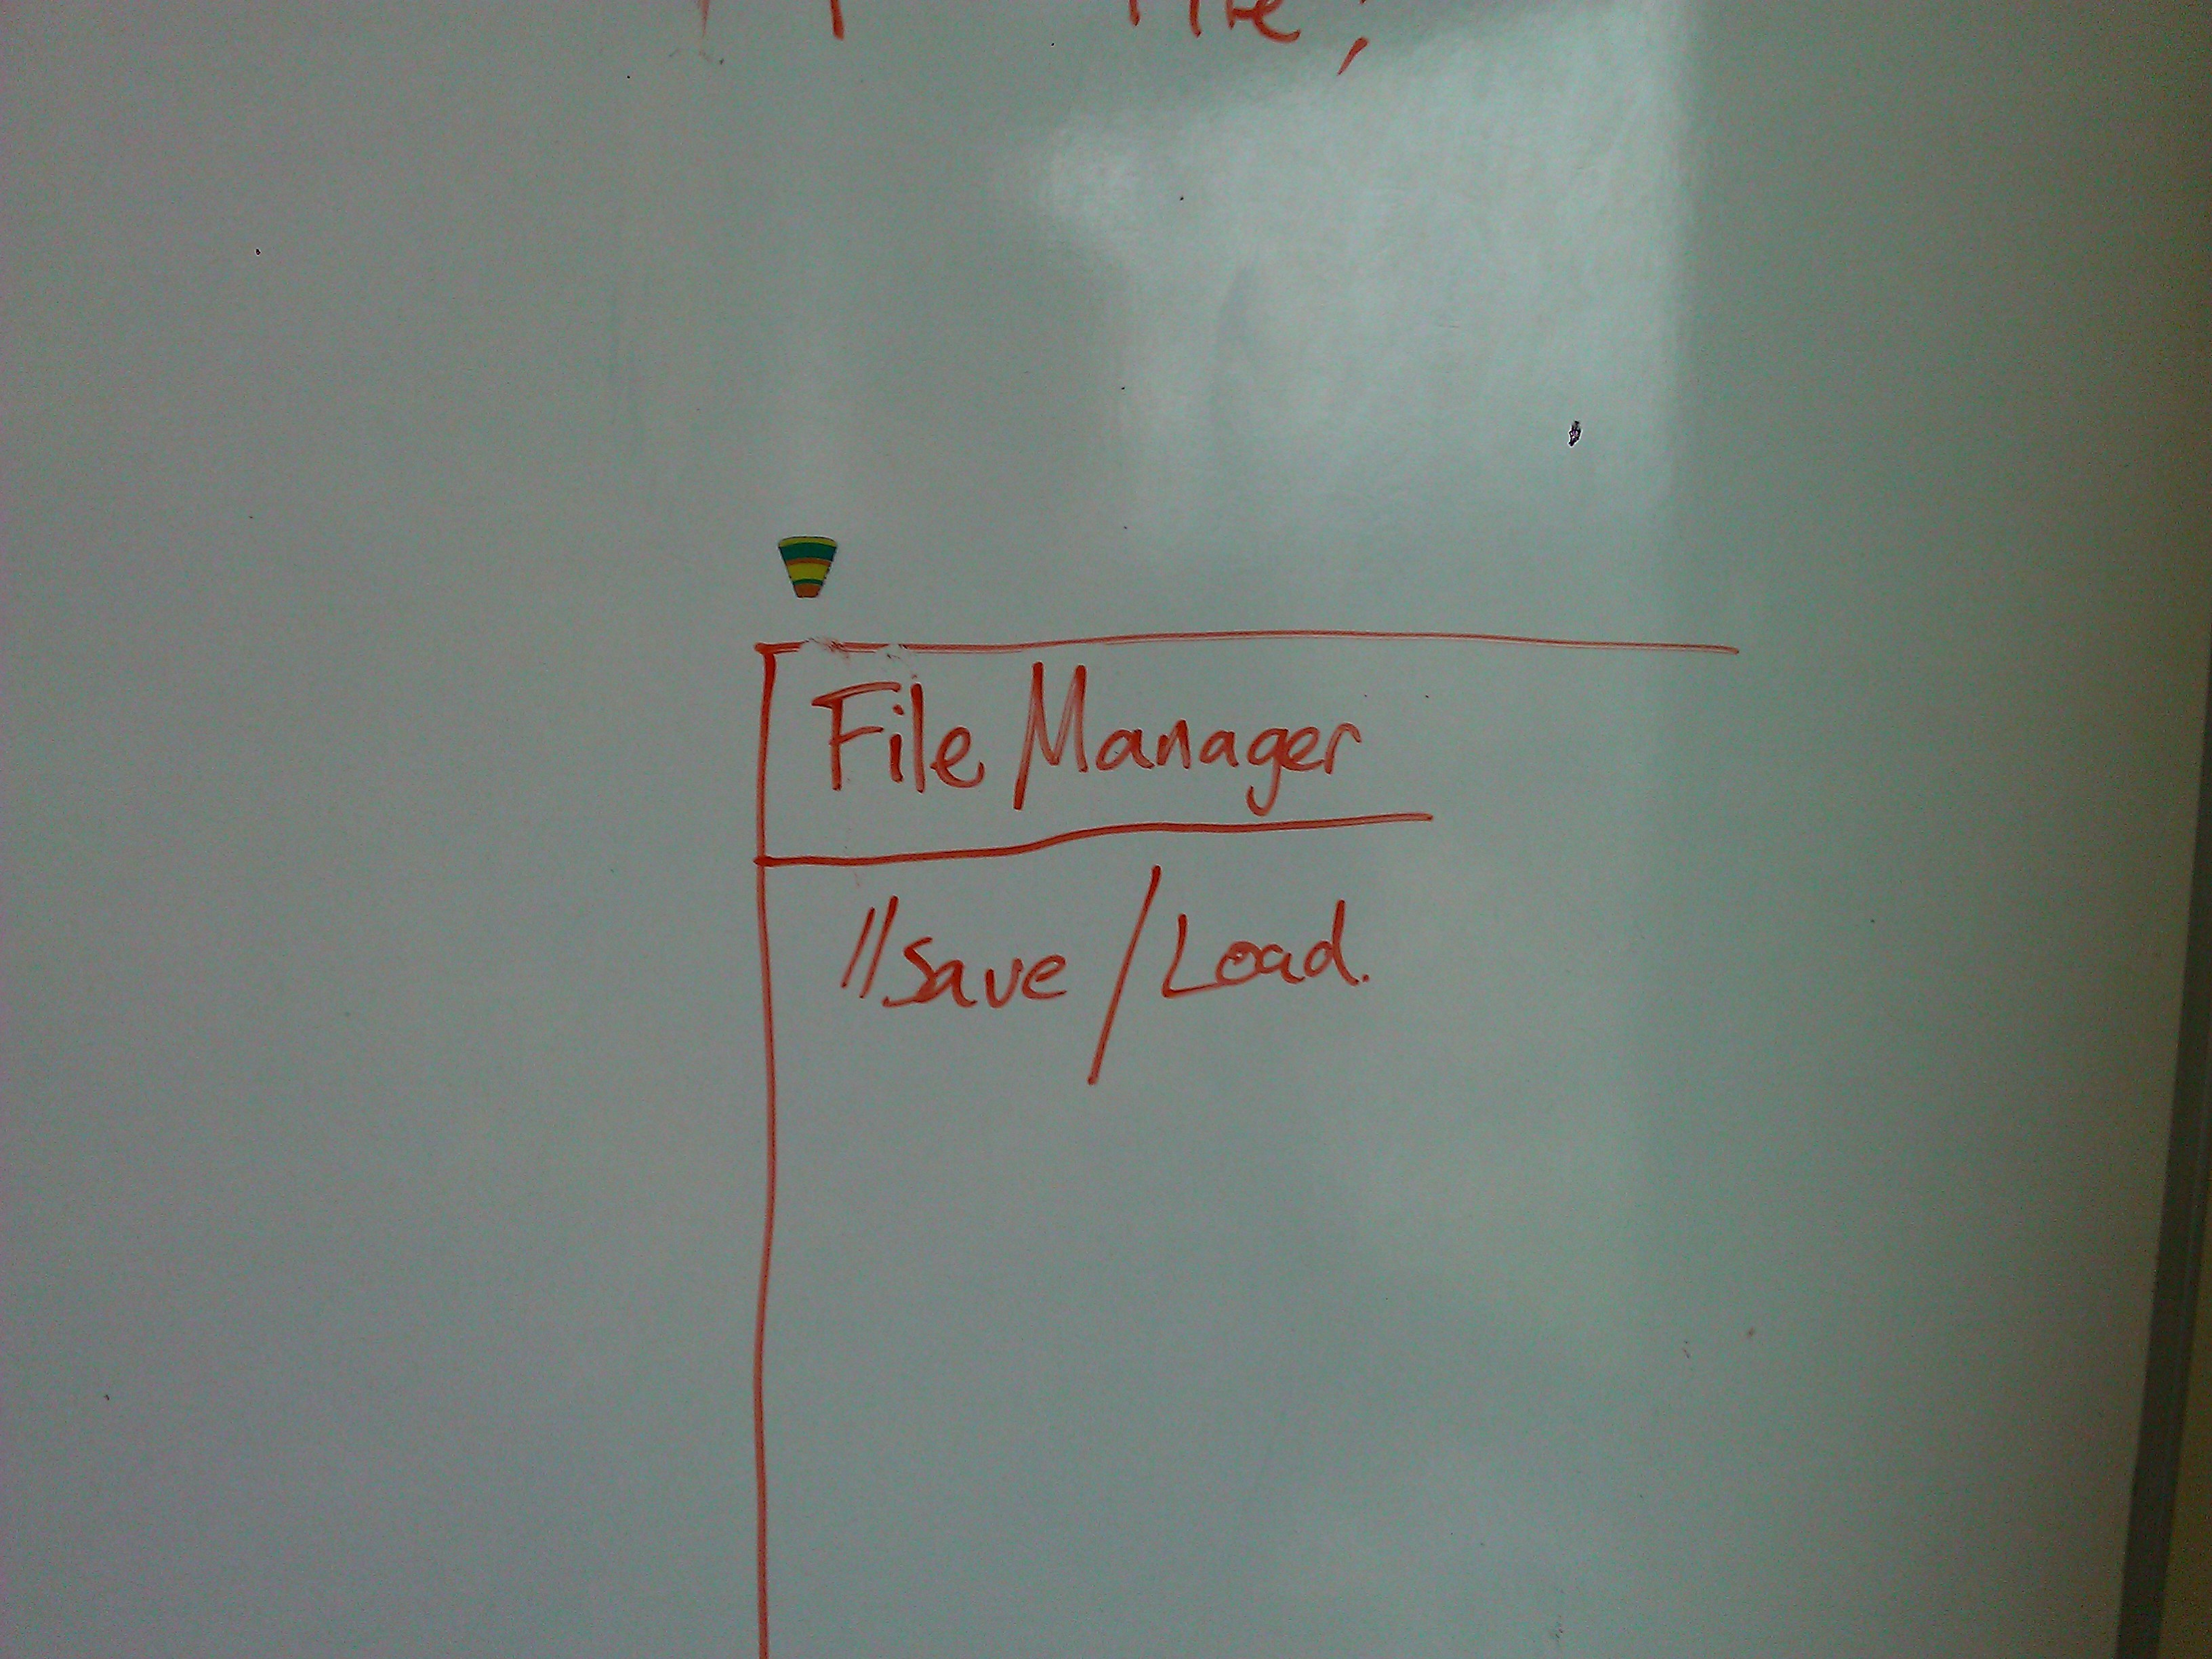 File Manager
//Save/Load.